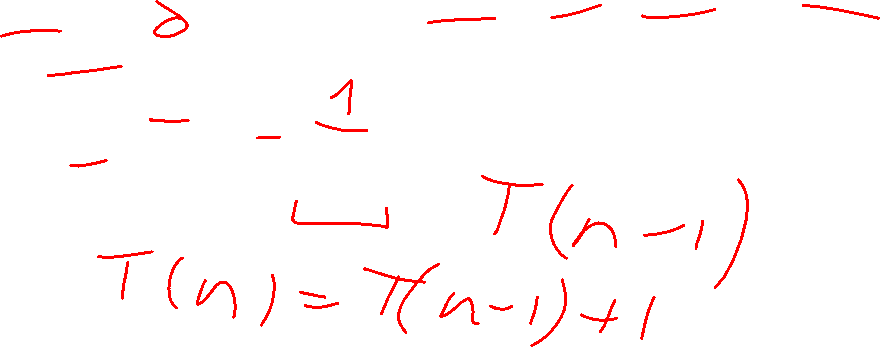 1
T(n-1)
T(n) = T(n-1)+1